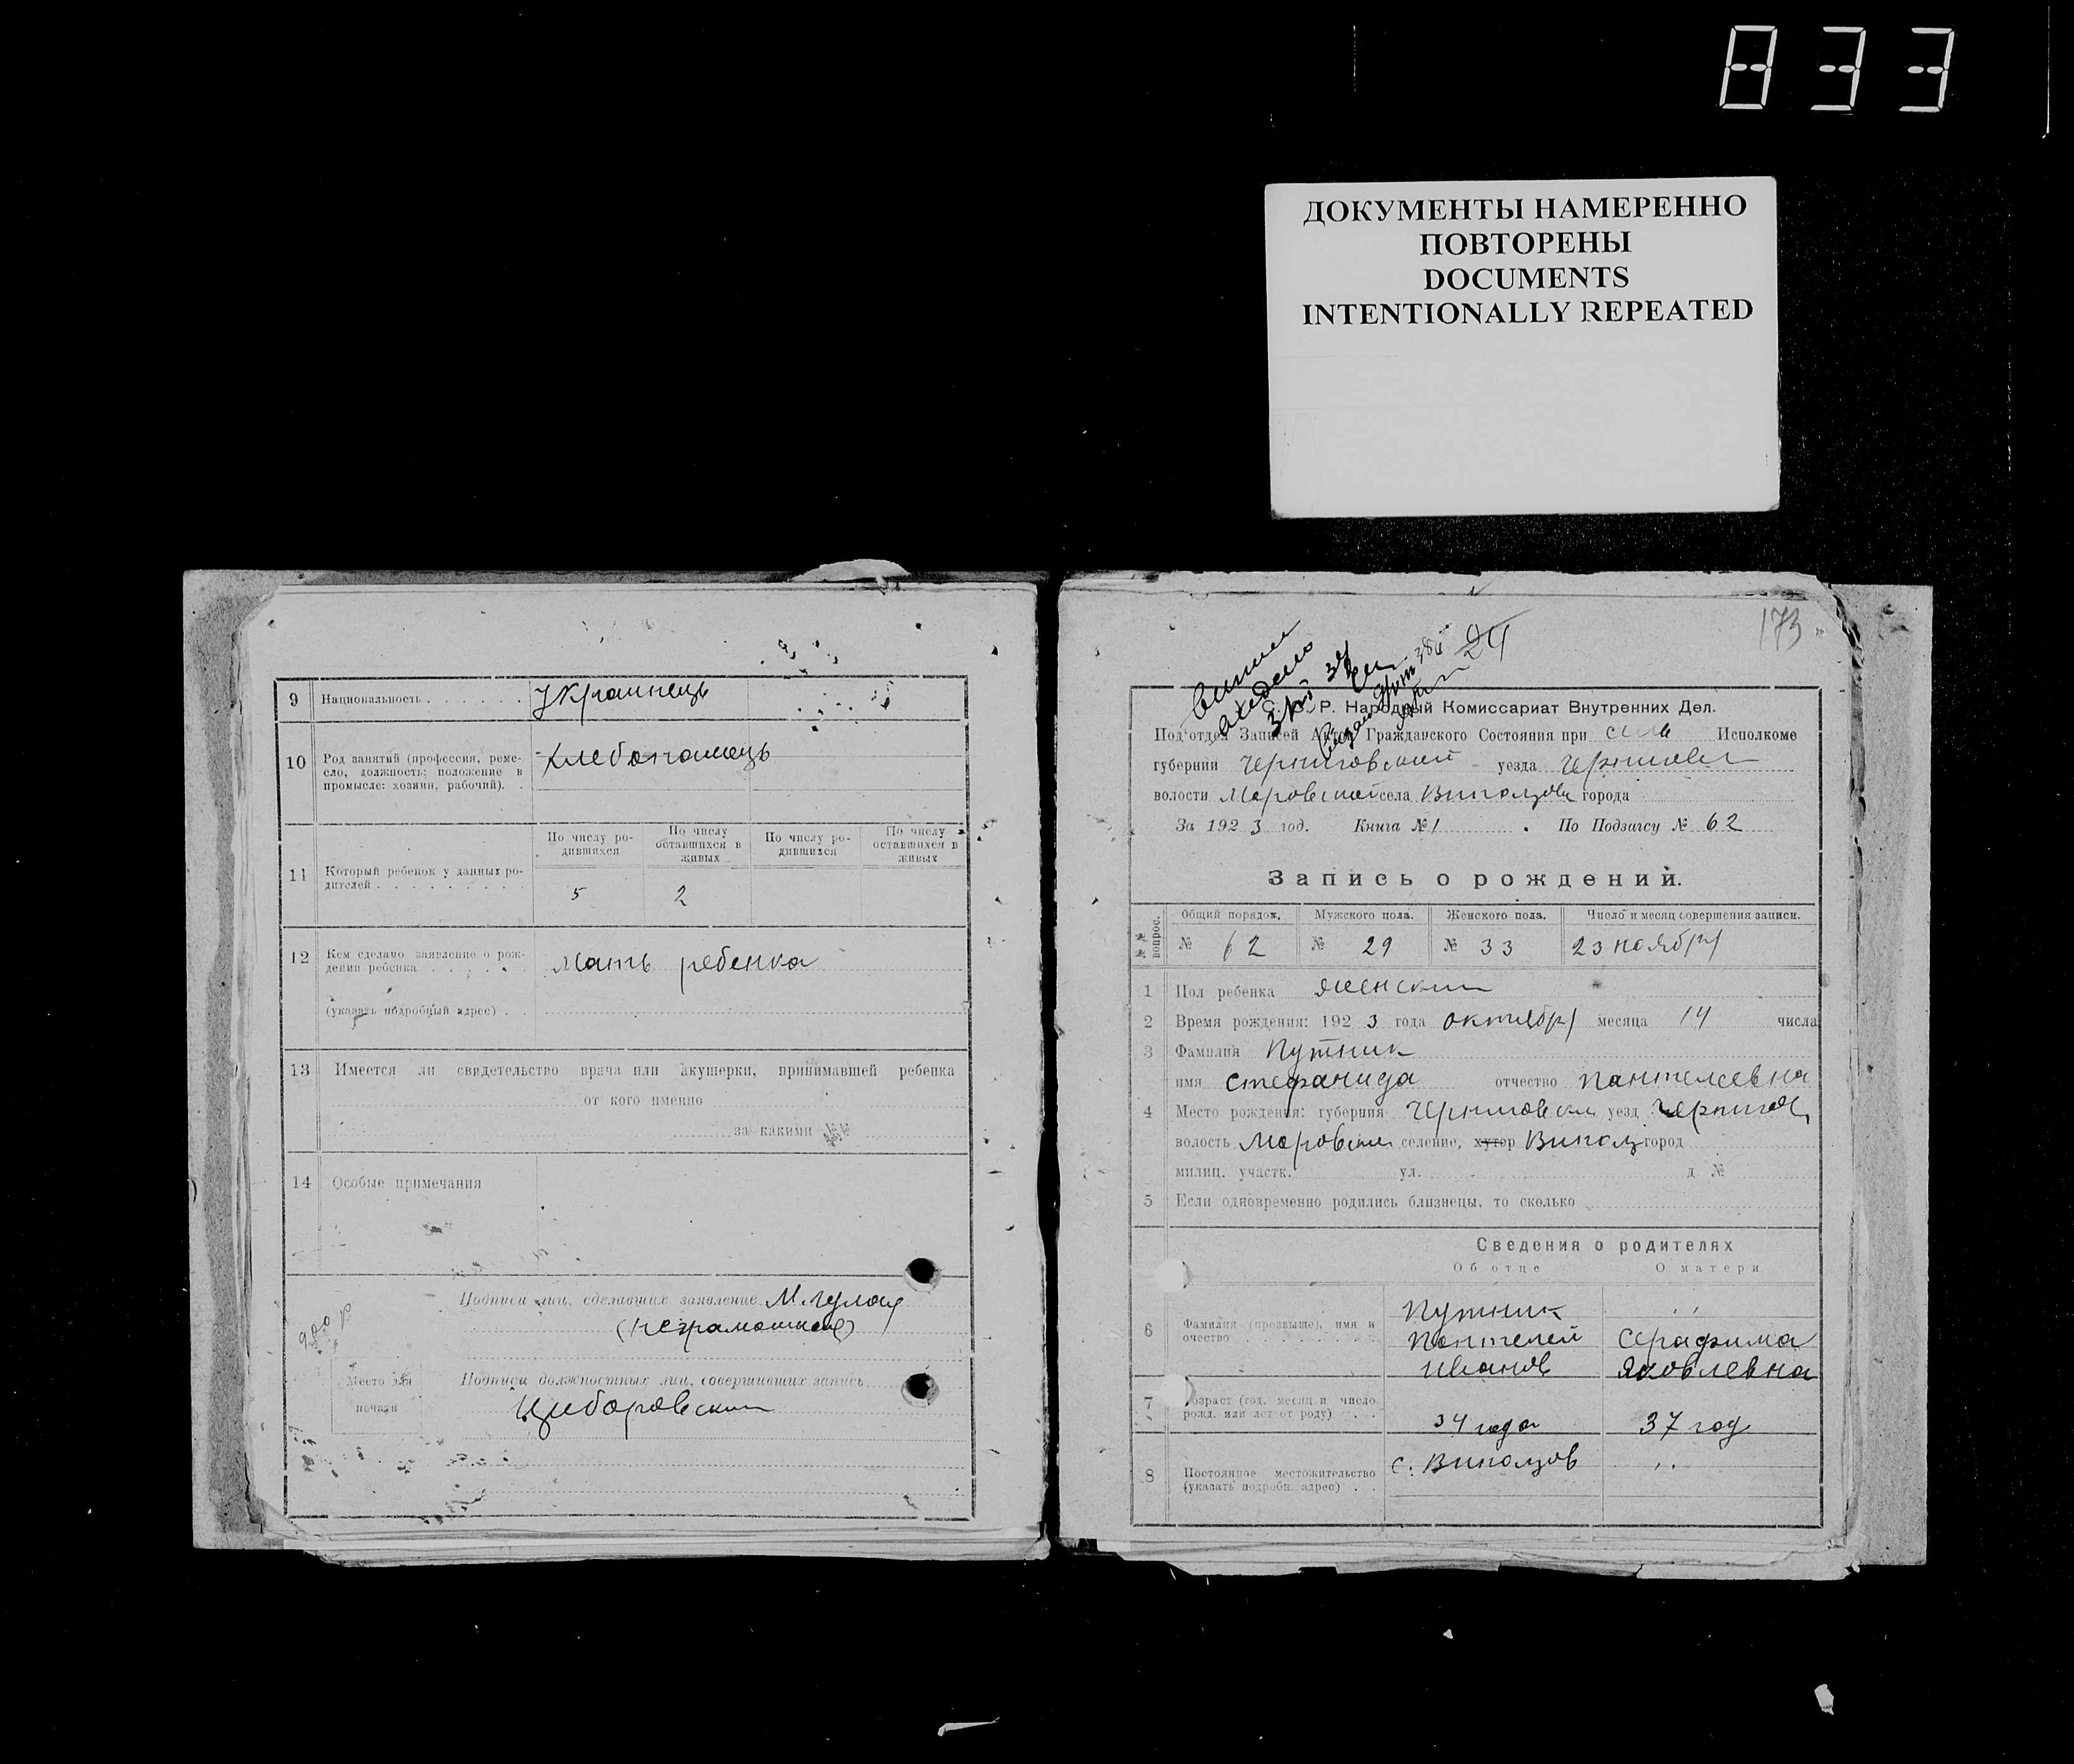 833
ДОКУМЕНТЫ НАМЕРЕННО
ПОВТОРЕНЫ
DOCUMENTS
INTENTIONALLY REPEATED
9 Национальность Українець
10 Род занятий (профессия, реме-
сло, должность; положение в
промысле: хозяин, рабочий).
Хлебопашець
По числу ро-
дившихся
По числу
оставшихся в
живых
По числу ро-
дившихся
По числу
оставшихся в
живых
11 Который ребенок у данных ро-
дителей
5 2
12 Кем сделано заявление о рож-
дении ребенка
Мать ребенка
(указать подробный адрес)
13 Имеется ли свидетельство врача или акушерки, принимавшей ребенка
от кого именно
за какими №№
14 Особые примечания
Подписи лиц, сделавших заявление
900 р
Место для
печати
Подписи должностных лиц, совершивших запись
173
24
Р. Народный Комиссариат Внутренних Дел.
Под'отдел Записей Актов Гражданского Состояния при Исполкоме
губернии Черниговской уезда
волости села города
За 1923 год. Книга №1. По Подзагсу № 62
Запись о рождений.
№№ вопрос.
Общий порядок. Мужского пола. Женского пола. Число и месяц совершения записи.
№ 62 № 29 № 33 23 ноября
1 Пол ребенка женский
2 Время рождения: 1923 года октября месяца 14 числа
3 Фамилия Путник
имя Стефанида отчество Пантелеевна
4 Место рождения: губерния уезд
волость селение, хутор город
милиц. участк. ул. д №
5 Если одновременно родились близнецы, то сколько
Сведения о родителях
Об отце О матери
6 Фамилия (прозвище), имя и
очество
Путник ,,
Пантелей Серафима
Иванов Яковлевна
7 Возраст (год, месяц и число
рожд. или лет от роду)
34 года 37 год
8 Постоянное местожительство
(указать подробн. адрес)
с. Виползов ,,